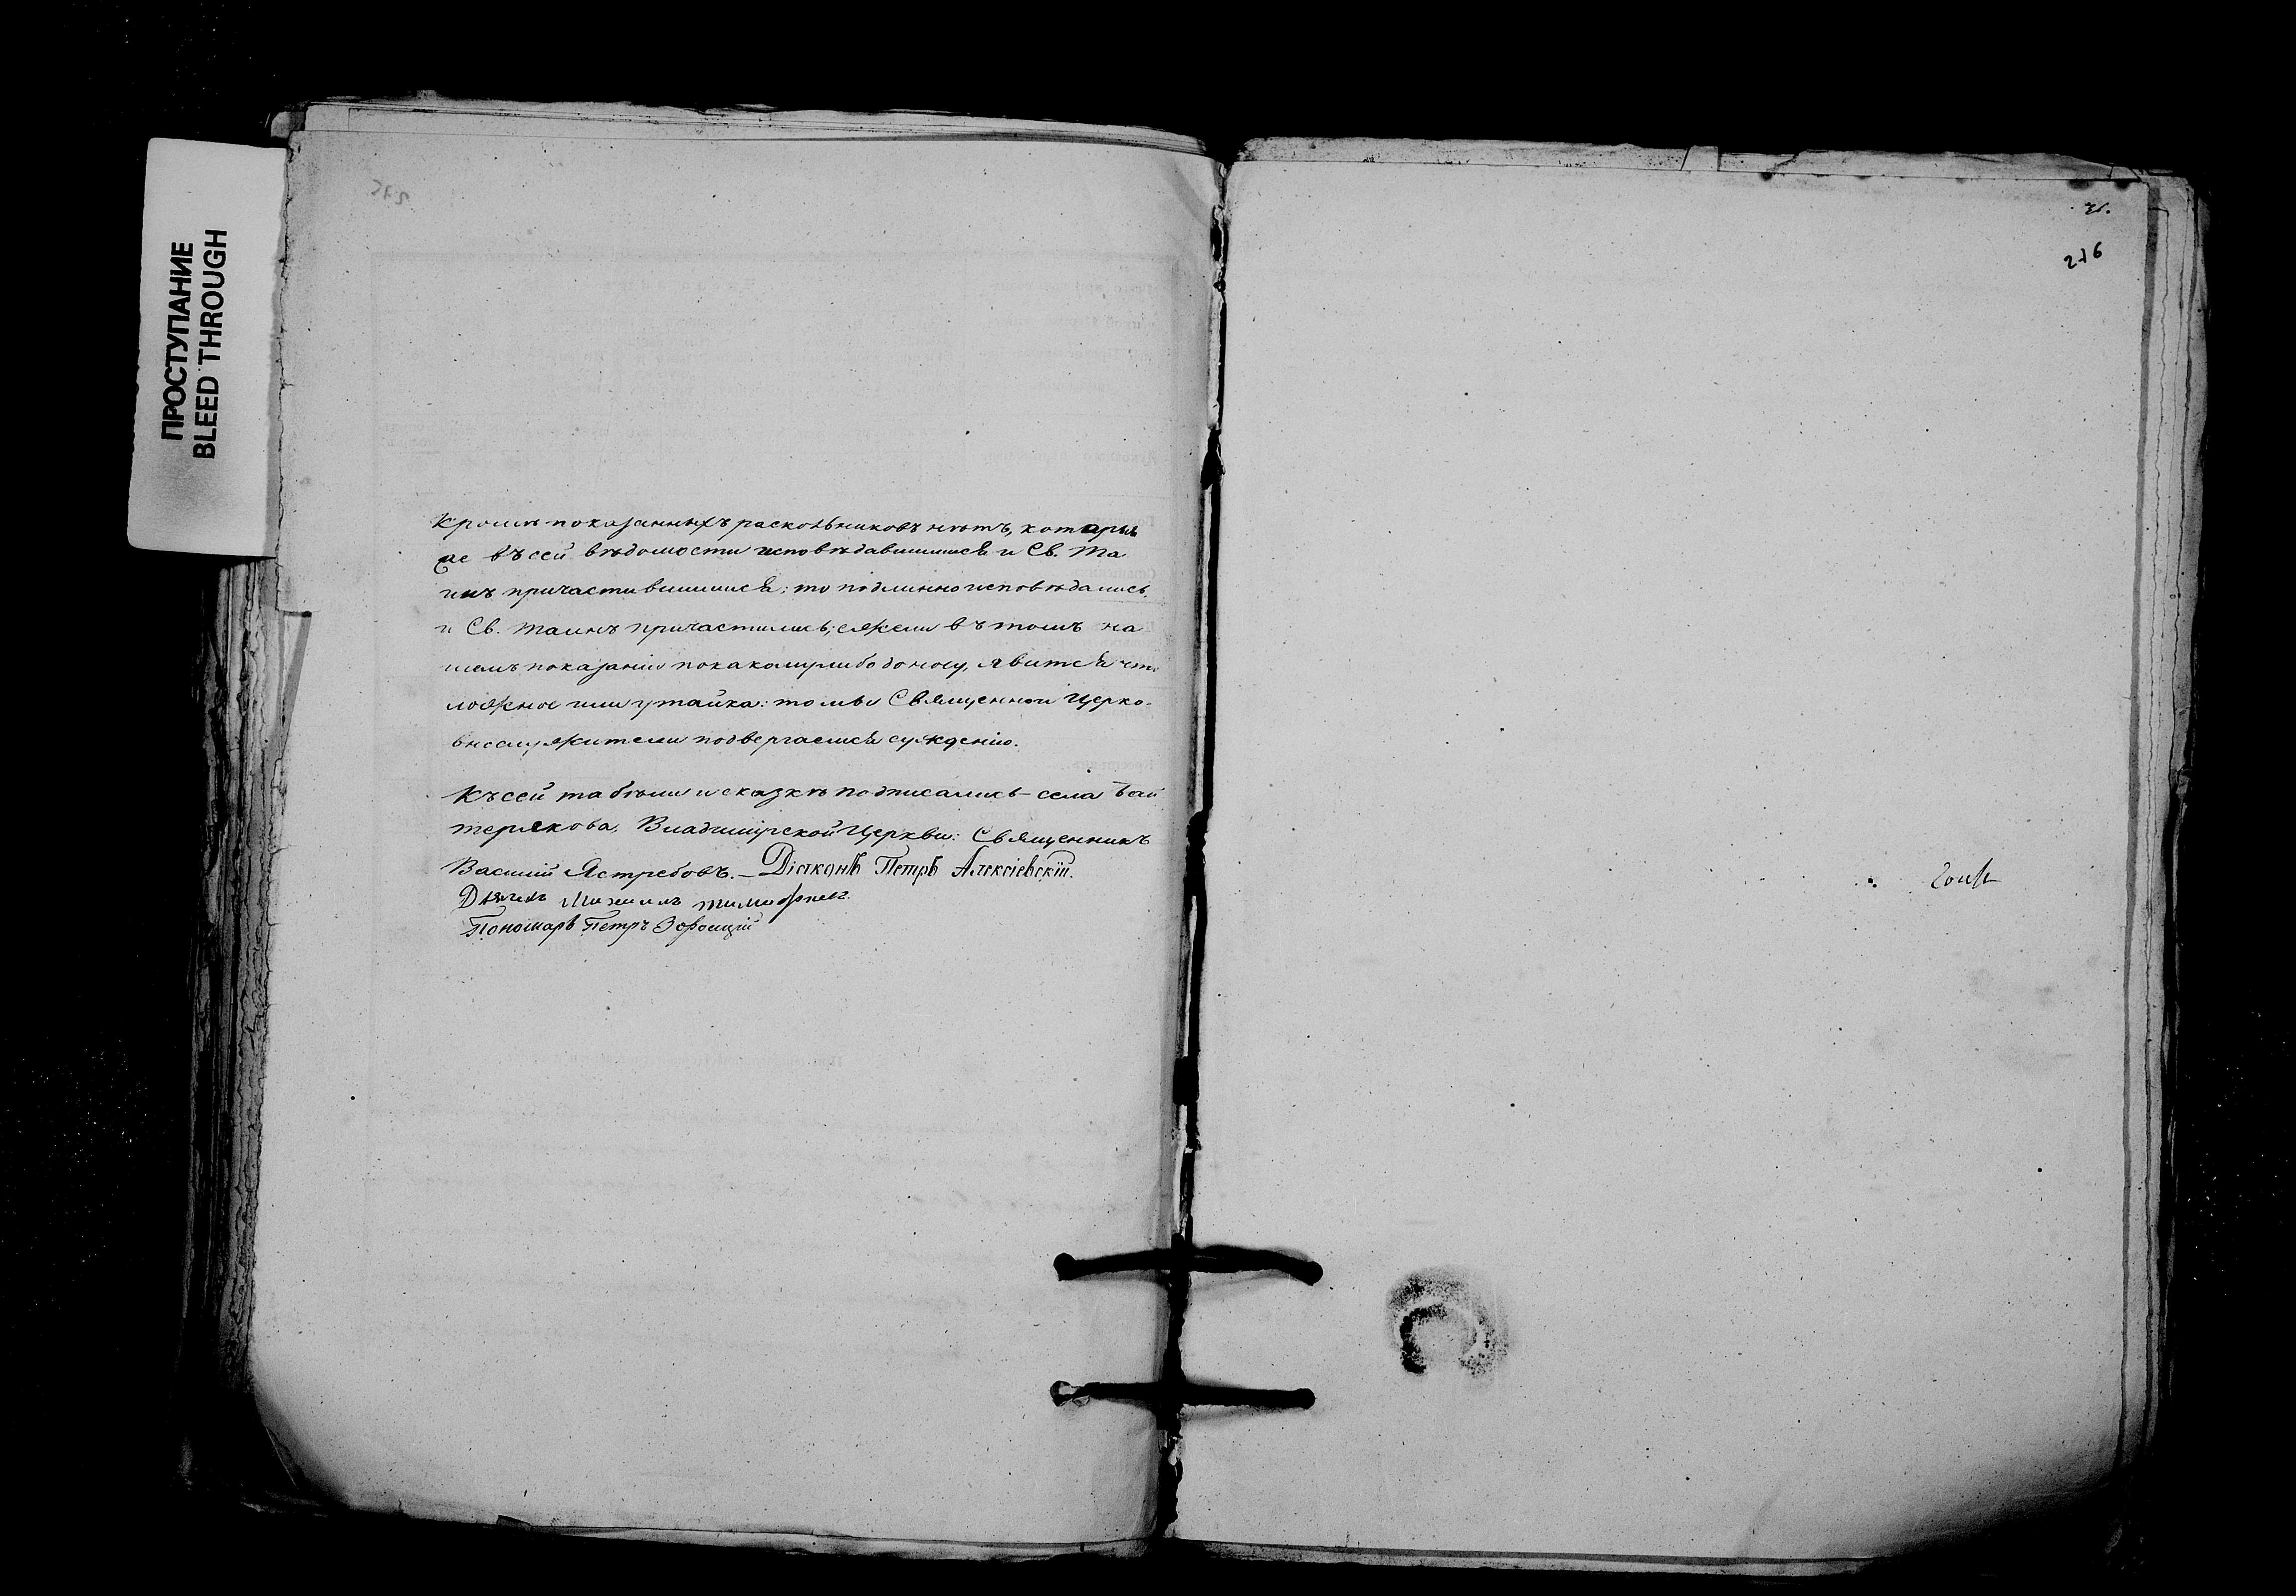 ПРОСТУПАНИЕ
BLEED THROUGH
Кромѣ показанныхъ раскольниковъ нѣтъ, которы
ае въ сей вѣдомости исповѣдавшимися и Св. Та
инъ причастившимися: то подлинно исповѣдались
и Св. Таинъ причастились; ежели въ томъ на
шемъ показаніи по какому либо доносу, явится что
ложное или утайка: то мы Священно и Церко-
вно служители подвергаемся сужденію.
Къ сей табели и сказкѣ подписались села Бай
терякова, Владимірской Церкви: Священникъ
Василій Ястребовъ. – Діаконъ Петръ Алексіевскій.
Дьячекъ Михаилъ Тимофѣевъ.
Пономарь Петръ
276